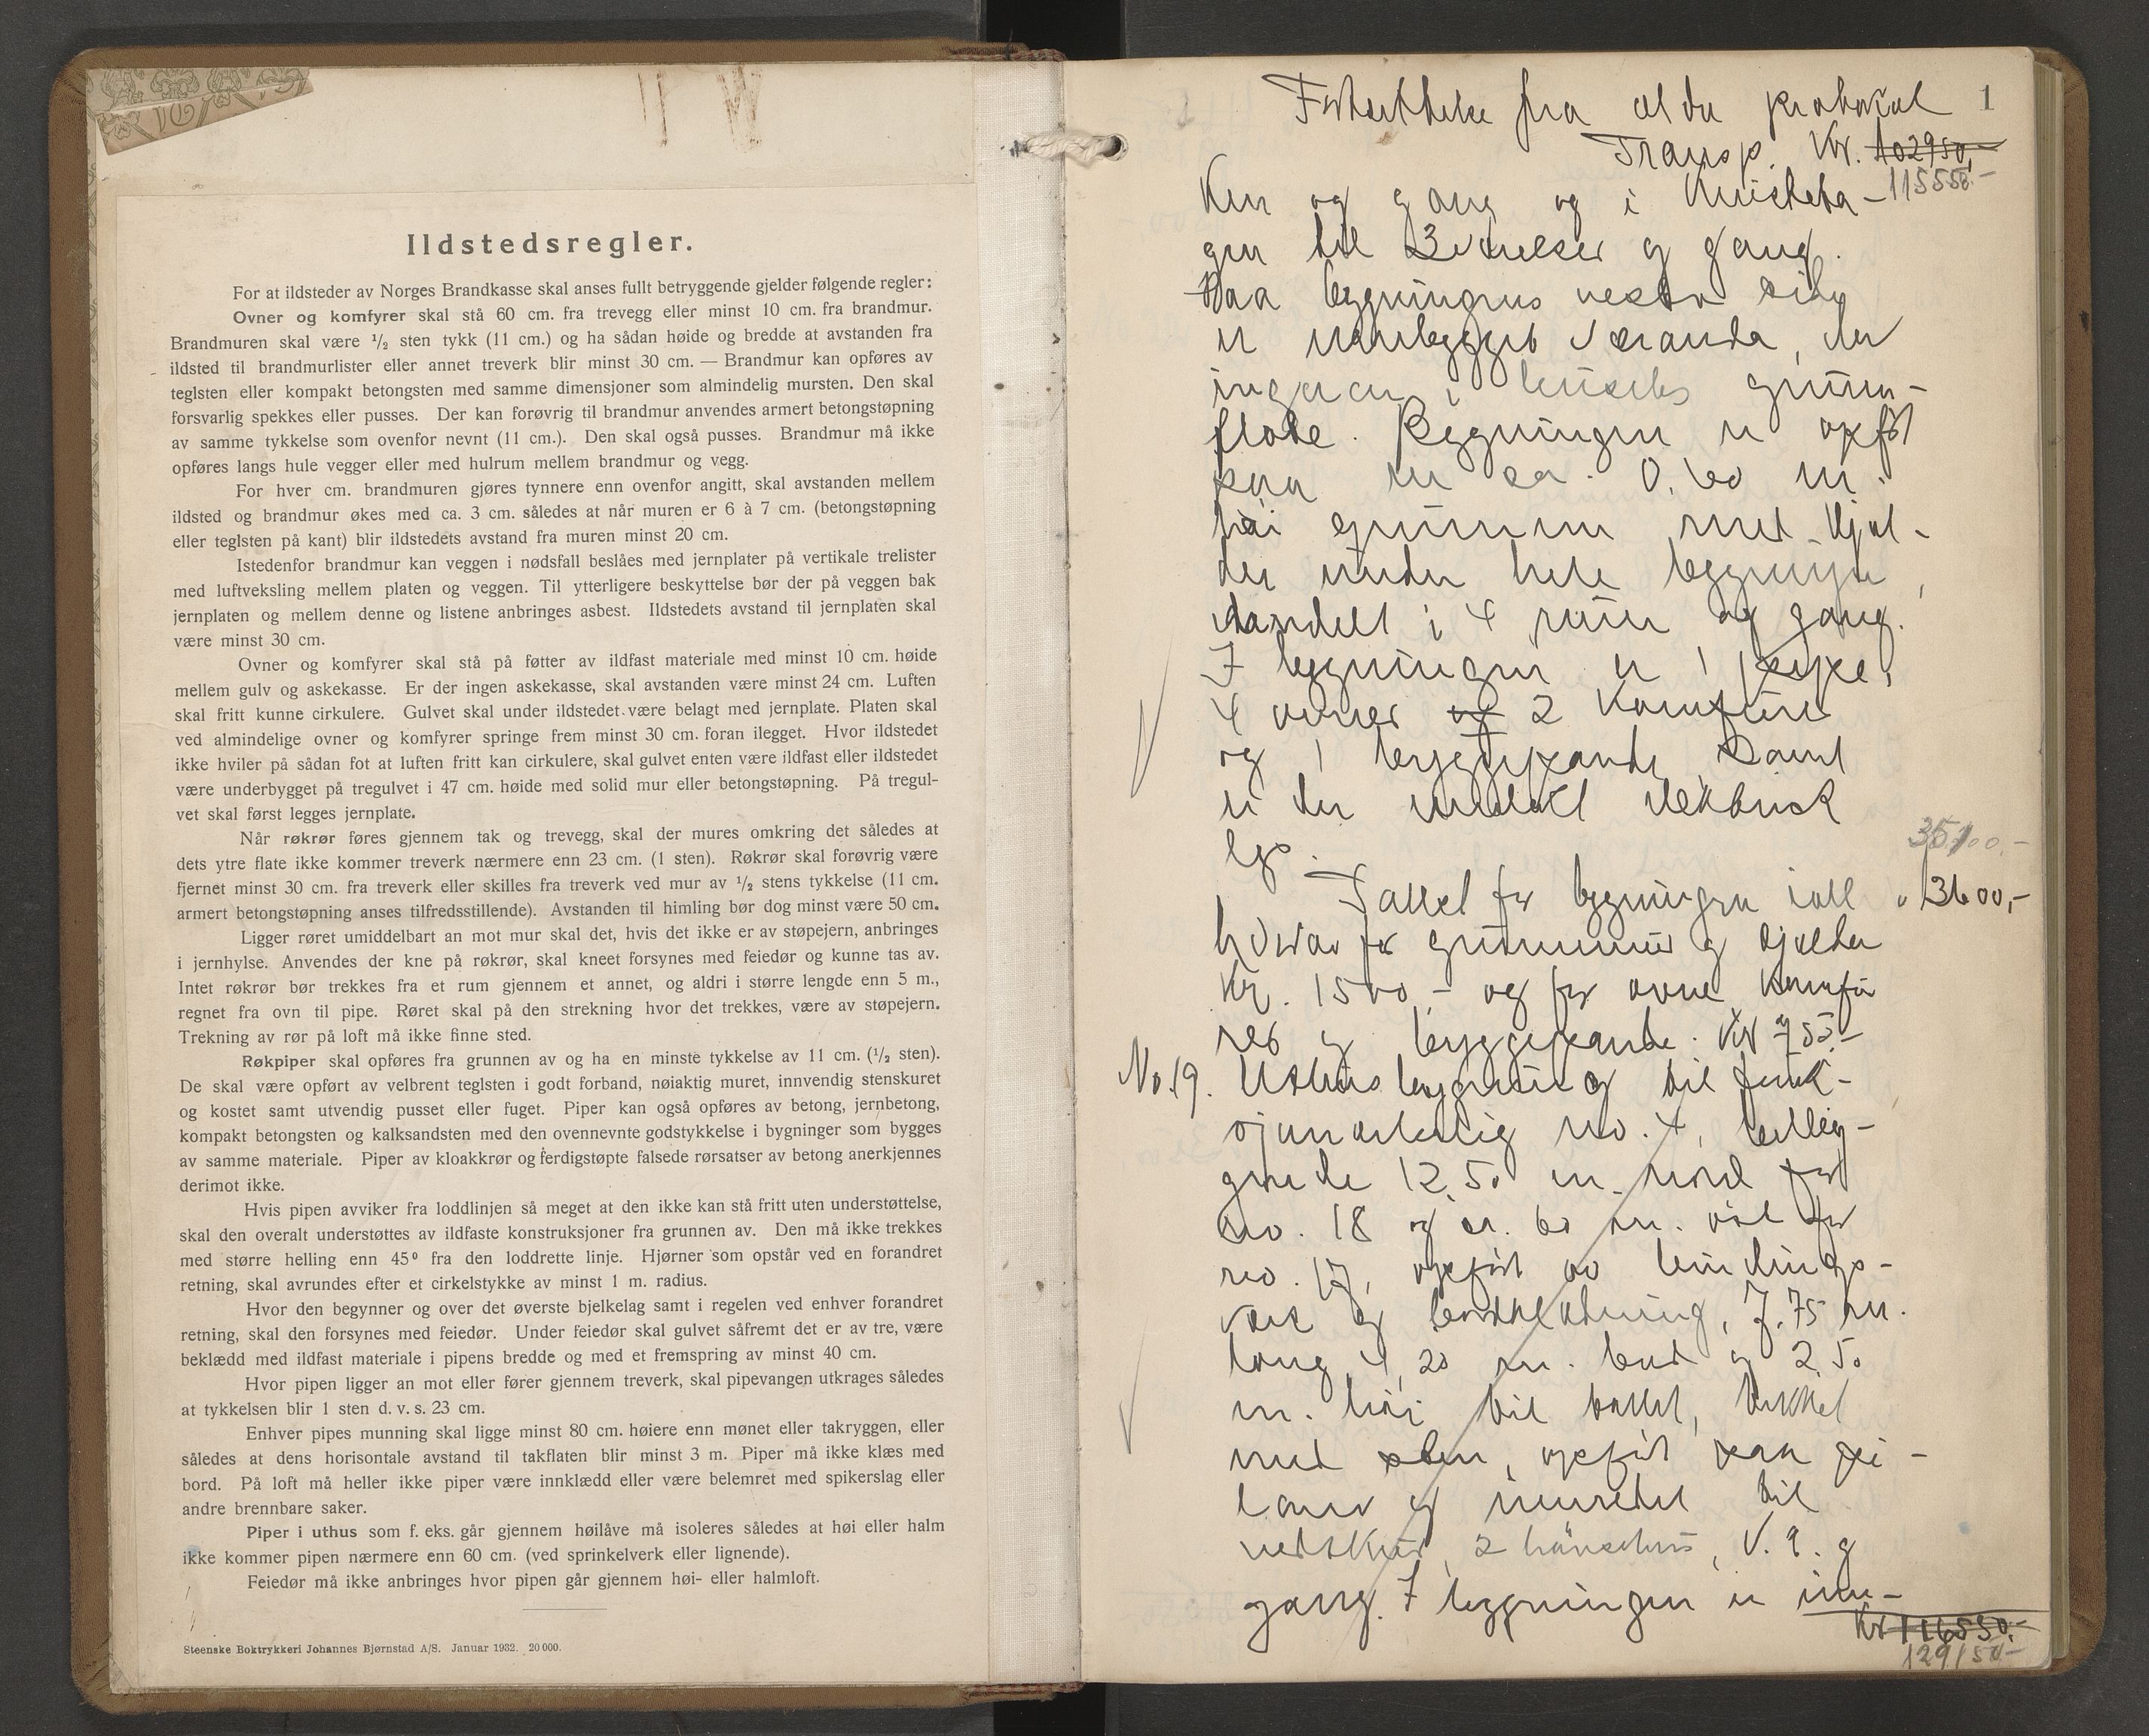 Ildstedsregler.
For at ildsteder av Norges Brandkasse skal anses fullt betryggende gjelder følgende regler:
Ovner og komfyrer skal stå 60 cm. fra trevegg eller minst 10 cm. fra brandmur.
Brandmuren skal være ½ sten tykk (11 cm.) og ha sådan høide og bredde at avstanden fra
ildsted til brandmurlister eller annet treverk blir minst 30 cm. — Brandmur kan opføres av
teglsten eller kompakt betongsten med samme dimensjoner som almindelig mursten. Den skal
forsvarlig spekkes eller pusses. Der kan forøvrig til brandmur anvendes armert betongstøpning
av samme tykkelse som ovenfor nevnt (11 cm.). Den skal også pusses. Brandmur må ikke
opføres langs hule vegger eller med hulrum mellem brandmur og vegg.
For hver cm. brandmuren gjøres tynnere enn ovenfor angitt, skal avstanden mellem
ildsted og brandmur økes med ca. 3 cm. således at når muren er 6 à 7 cm. (betongstøpning
eller teglsten på kant) blir ildstedets avstand fra muren minst 20 cm.
Istedenfor brandmur kan veggen i nødsfall beslåes med jernplater på vertikale trelister
med luftveksling mellem platen og veggen. Til ytterligere beskyttelse bør der på veggen bak
jernplaten og mellem denne og listene anbringes asbest. Ildstedets avstand til jernplaten skal
være minst 30 cm.
Ovner og komfyrer skal stå på føtter av ildfast materiale med minst 10 cm. høide
mellem gulv og askekasse. Er der ingen askekasse, skal avstanden være minst 24 cm. Luften
skal fritt kunne cirkulere. Gulvet skal under ildstedet være belagt med jernplate. Platen skal
ved almindelige ovner og komfyrer springe frem minst 30 cm. foran ilegget. Hvor ildstedet
ikke hviler på sådan fot at luften fritt kan cirkulere, skal gulvet enten være ildfast eller ildstedet
være underbygget på tregulvet i 47 cm. høide med solid mur eller betongstøpning. På tregul-
vet skal først legges jernplate.
Når røkrør føres gjennem tak og trevegg, skal der mures omkring det således at
dets ytre flate ikke kommer treverk nærmere enn 23 cm. (1 sten). Røkrør skal forøvrig være
fjernet minst 30 cm. fra treverk eller skilles fra treverk ved mur av ½ stens tykkelse (11 cm.
armert betongstøpning anses tilfredsstillende). Avstanden til himling bør dog minst være 50 cm.
Ligger røret umiddelbart an mot mur skal det, hvis det ikke er av støpejern, anbringes
i jernhylse. Anvendes der kne på røkrør, skal kneet forsynes med feiedør og kunne tas av.
Intet røkrør bør trekkes fra et rum gjennem et annet, og aldri i større lengde enn 5 m.,
regnet fra ovn til pipe. Røret skal på den strekning hvor det trekkes, være av støpejern.
Trekning av rør på loft må ikke finne sted.
Røkpiper skal opføres fra grunnen av og ha en minste tykkelse av 11 cm. (½ sten).
De skal være opført av velbrent teglsten i godt forband, nøiaktig muret, innvendig stenskuret
og kostet samt utvendig pusset eller fuget. Piper kan også opføres av betong, jernbetong,
kompakt betongsten og kalksandsten med den ovennevnte godstykkelse i bygninger som bygges
av samme materiale. Piper av kloakkrør og ferdigstøpte falsede rørsatser av betong anerkjennes
derimot ikke.
Hvis pipen avviker fra loddlinjen så meget at den ikke kan stå fritt uten understøttelse,
skal den overalt understøttes av ildfaste konstruksjoner fra grunnen av. Den må ikke trekkes
med større helling enn 45° fra den loddrette linje. Hjørner som opstår ved en forandret
retning, skal avrundes efter et cirkelstykke av minst 1 m. radius.
Hvor den begynner og over det øverste bjelkelag samt i regelen ved enhver forandret
retning, skal den forsynes med feiedør. Under feiedør skal gulvet såfremt det er av tre, være
beklædd med ildfast materiale i pipens bredde og med et fremspring av minst 40 cm.
Hvor pipen ligger an mot eller fører gjennem treverk, skal pipevangen utkrages således
at tykkelsen blir 1 sten d. v. s. 23 cm.
Enhver pipes munning skal ligge minst 80 cm. høiere enn mønet eller takryggen, eller
således at dens horisontale avstand til takflaten blir minst 3 m. Piper må ikke klæs med
bord. På loft må heller ikke piper være innklædd eller være belemret med spikerslag eller
andre brennbare saker.
Piper i uthus som f. eks. går gjennem høilåve må isoleres således at høi eller halm
ikke kommer pipen nærmere enn 60 cm. (ved sprinkelverk eller lignende).
Feiedør må ikke anbringes hvor pipen går gjennem høi- eller halmloft.
Steenske Boktrykkeri Johannes Bjørnstad A/S. Januar 1932. 20 000.
1
Fortsettelse fra eldre protokol
Transp. Kr. 102950,
115550.-
og gang og i Knisteta-
gen til 3 værelser og gang.
Paa bygningens vestre side
er veranda, der
i husets grunn-
flate. Bygningen er opført
paa en ca. 0.60 m.
høi grunnmur med kjel-
der under hele bygningen,
inndelt i 4 rum og gang.
I bygningen er 1 pipe,
4 ovner og 2 komfurer
og 1 bryggepanne, samt
er der innlakt elektrisk
lys.
35100.-
Taxert for bygningen i alt " 13600,-
hvorav for grunnmur og kjelder
Kr. 1500,- og for ovner, komfu-
rer og bryggepanne Kr 755.-
No. 19. Uthusbygning til funk-
sjonærbolig no. 4, belig-
gende 12,50 m. nord for
no. 18 og ca. 60 m. øst for
no. 17, opført av bindings-
verk og bordklædning, 7.75 m.
lang 4,20 m. bred og 2,50
m. høi til taket, tekket
med sten, opført paa pi-
larer og innredet til
vedskur, 2 hønsehus, V. 9. og
gang. I bygningen er inn-
Kr 116550,-
129150.-